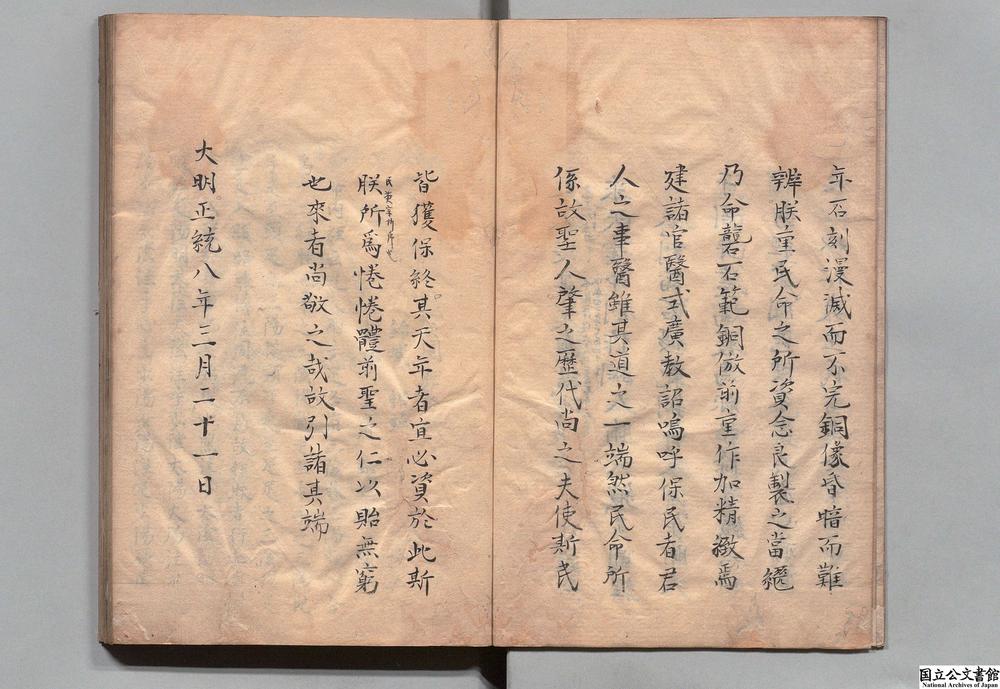 年石刻漫滅而不完銅像昏暗而難
辨朕重民命之所資念良製之當繼
乃命礱石範銅倣前重作加精緻焉
建諸官醫式廣教詔嗚呼保民者君
人之事醫雖其道之一端然民命所
係故聖人肇之歷代尚之夫使斯民
皆獲保終其天年者宜必資於此斯
朕所爲惓惓體前聖之仁以貽無窮
也來者尚敬之哉故引諸其端
大明正統八年三月二十一日
国立公文書館
National Archives of Japan